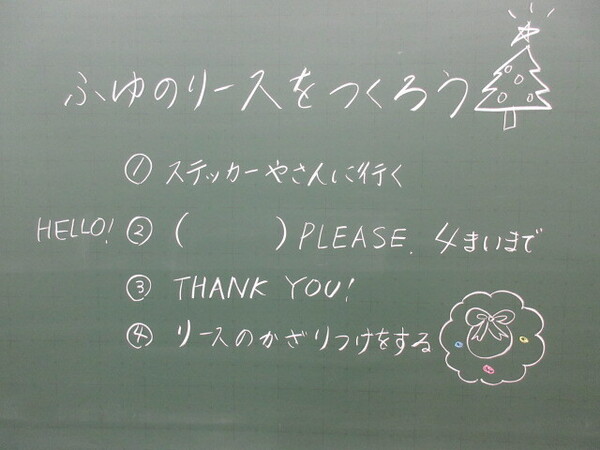 ふゆのリースをつくろう
① ステッカーやさんに行く
HELLO! ② (　　　) PLEASE. 4まいまで
③ THANK YOU!
④ リースのかざりつけをする